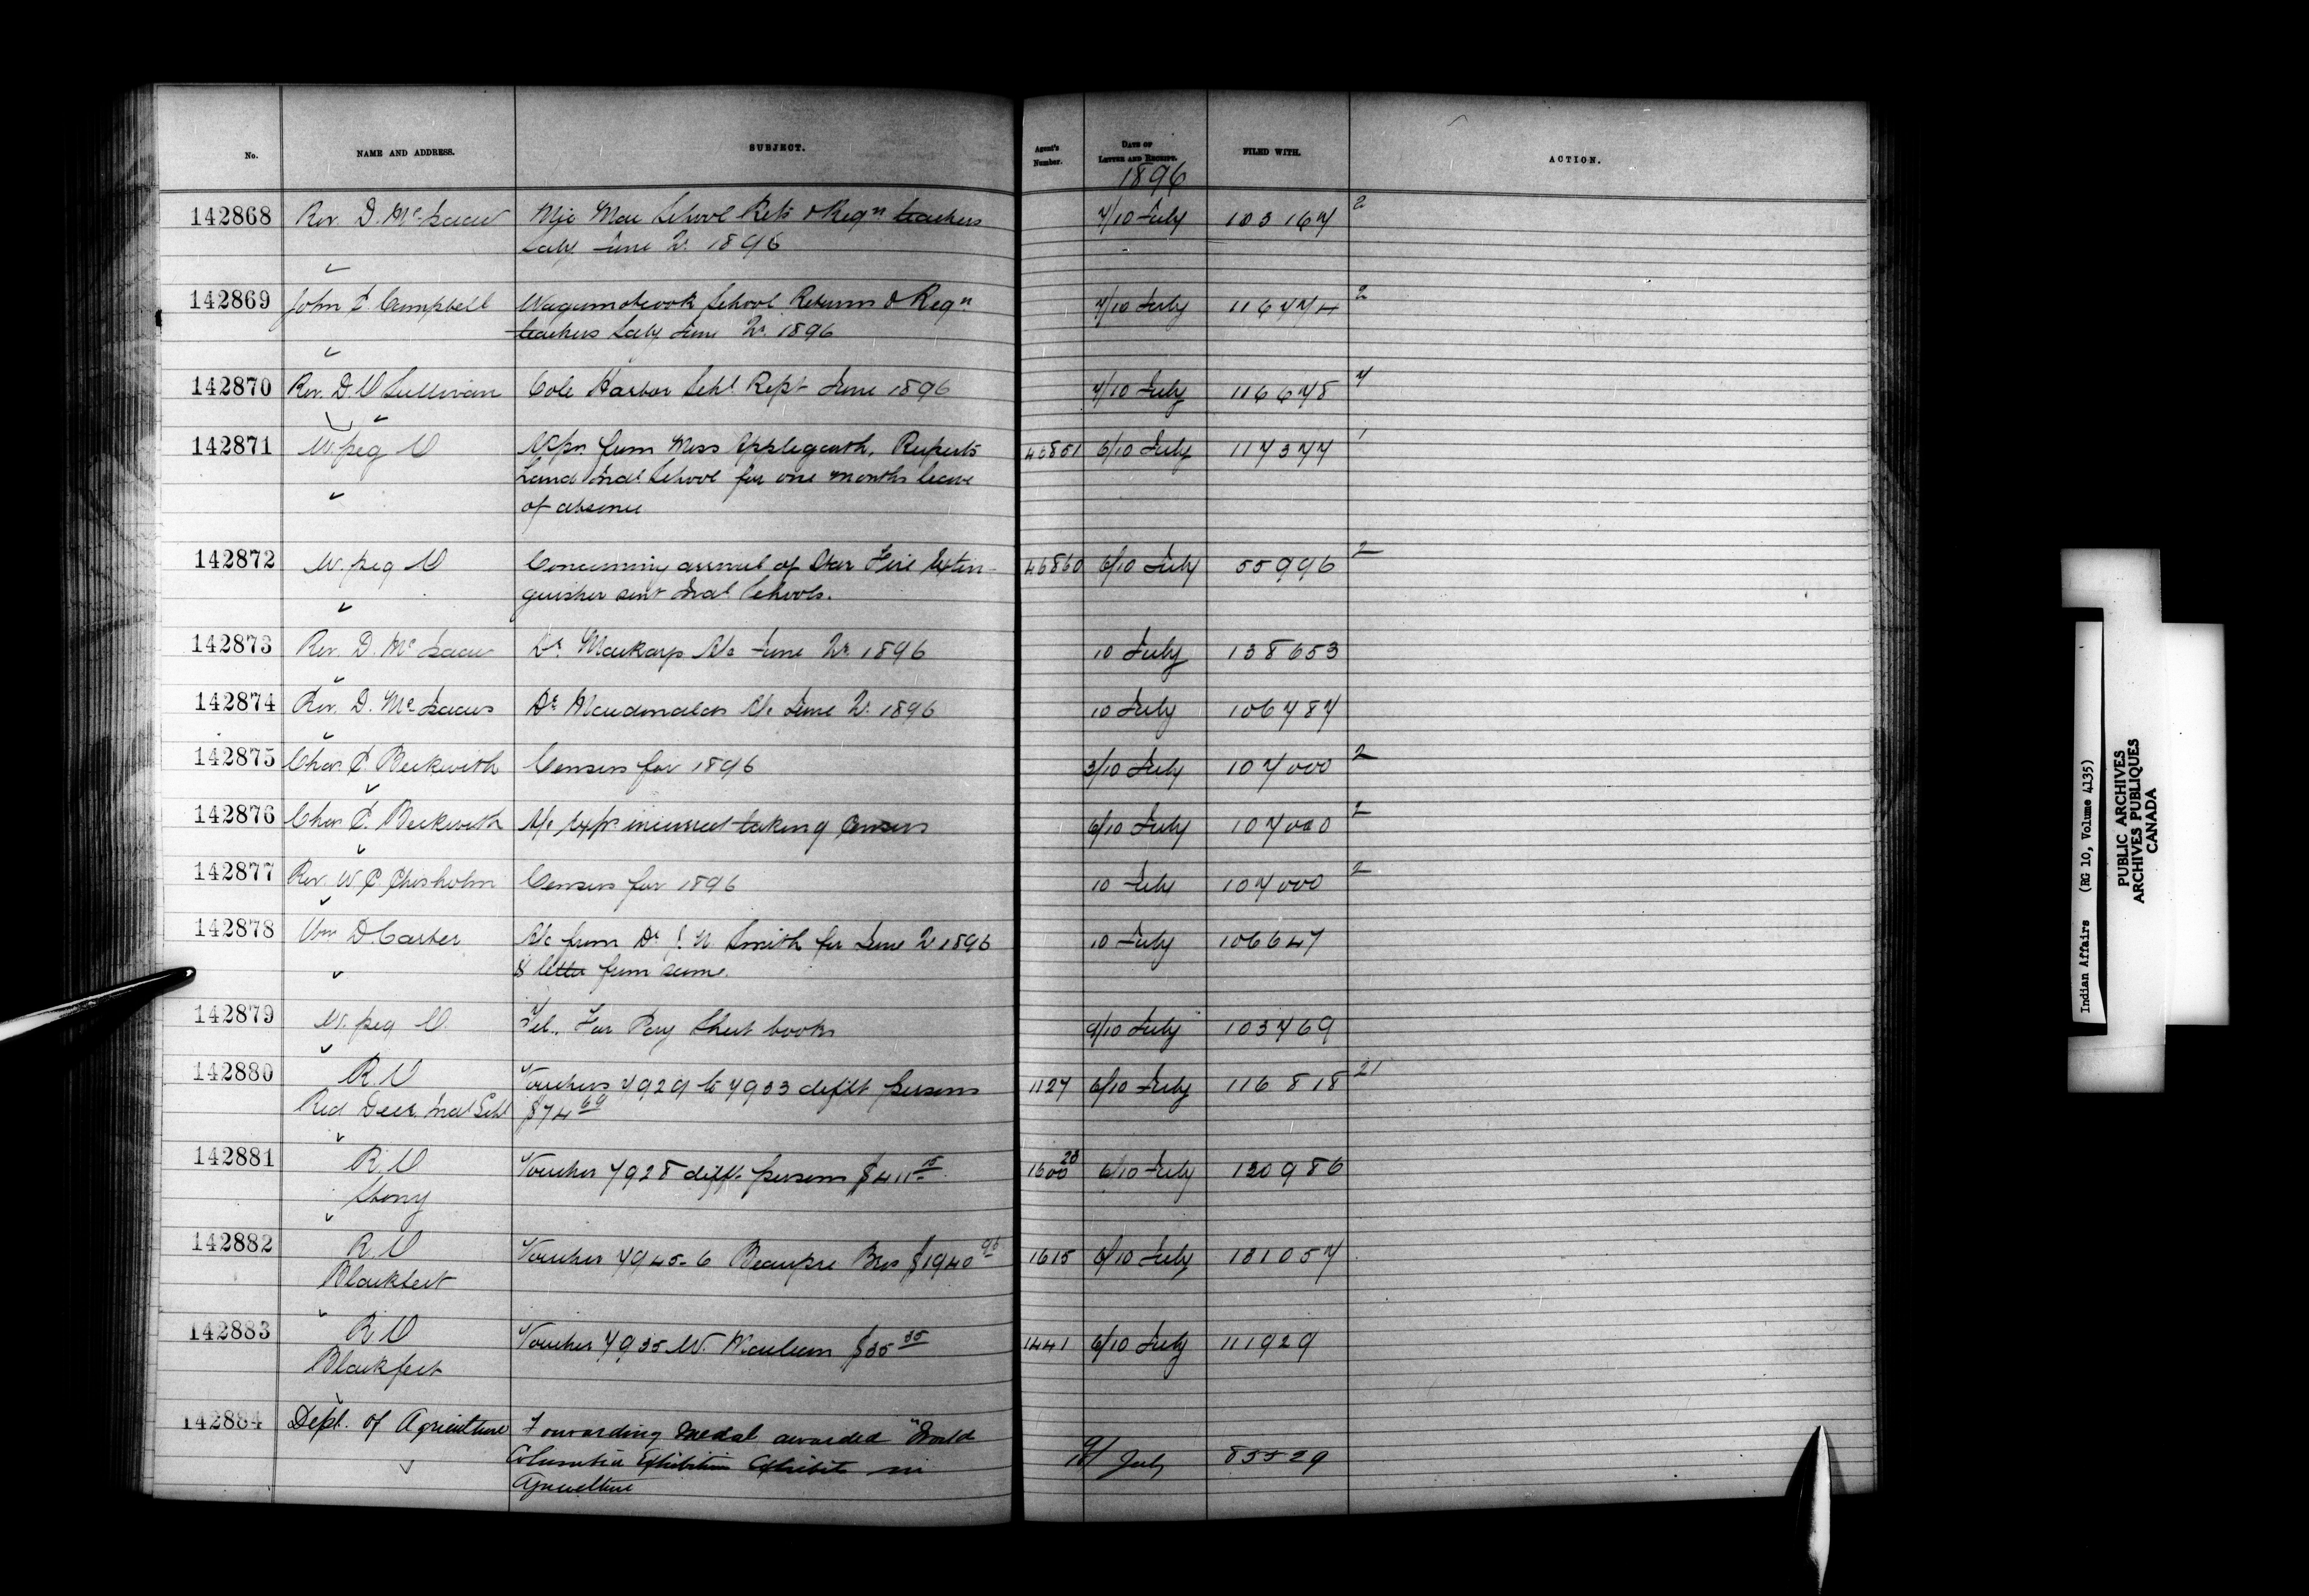 No. NAME AND ADDRESS. SUBJECT. Agent's Number. DATE OF LETTER AND RECEIPT. FILED WITH. ACTION.
1896
142868 Rev. D. McIsaac School Rets & Reqn teachers 7/10 July 103167 2
Saly June Qr. 1896
142869 John J. Campbell School Returns & Reqn 7/10 July 116474 2
teachers Saly June Qr. 1896
142870 Rev. D. O'Sullivan Cole Harbor Schl Rept June 1896 7/10 July 116678 7
142871 W.peg O Appn from Miss Applegarth, Ruperts 46851 6/10 July 117377 1
Land Indl School for one months leave
of absence
142872 W.peg O Concerning arrival of Star Fire Extin- 46860 6/10 July 55996 2
guisher sent Indl Schools.
142873 Rev. D. McIsaac Dr. A/c June Qr. 1896 10 July 138653
142874 Rev. D. McIsaac Dr. Macdonalds A/c June Qr. 1896 10 July 106787
142875 Chas. E. Beckwith Census for 1896 3/10 July 107000 2
142876 Chas. E. Beckwith A/c Exps. incurred taking Census 6/10 July 107000 2
142877 Rev. W. C. Chisholm Census for 1896 10 July 107000 2
142878 Wm D. Carter A/c from Dr J. N. Smith for June Qr 1896 10 July 106647
& letter from same.
142879 W.peg O. Tel. For Pay Sheet books 9/10 July 103769
142880 R.O Vouchers 7929 to 7933 difft persons 1127 6/10 July 116818 21
Red Deer Indl Schl $74 69
142881 R.O Voucher 7928 difft persons $411 15 1600 23 6/10 July 130986
Stony
142882 R.O Voucher 7945-6 Beaupre Bros $1940 96 1615 6/10 July 131057
Blackfeet
142883 R.O Voucher 7935 W. $35 35 1441 6/10 July 111929
Blackfeet
142884 Dept. of Agriculture Forwarding Medal awarded "World 9/10 July 85529
Columbia Exhibition Exhibits in
Agriculture
Indian Affairs (RG 10, Volume 4135)
PUBLIC ARCHIVES
ARCHIVES PUBLIQUES
CANADA